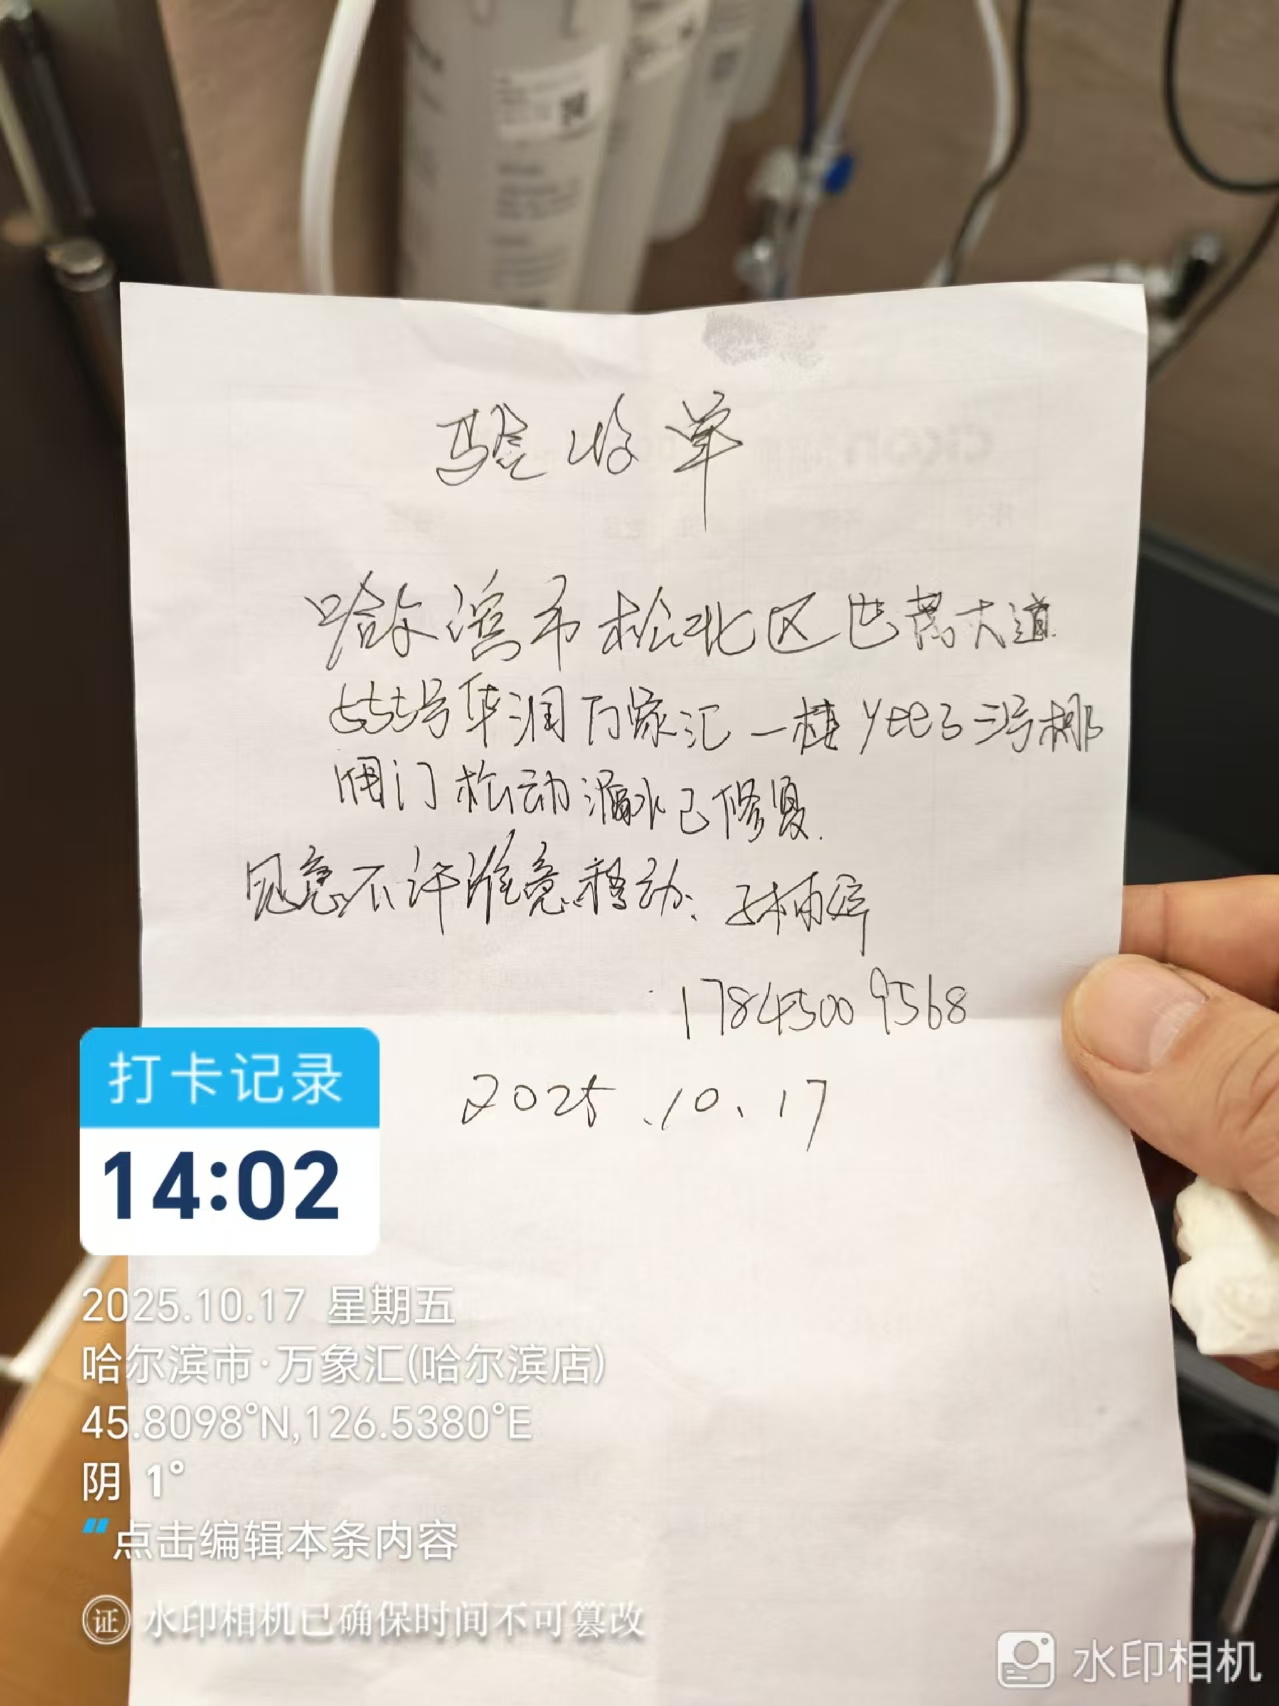 验收单
哈尔滨市松北区世茂大道
555号华润万象汇一楼yee3三号梯
阀门松动漏水已修复.
17845009568
2025.10.17
打卡记录
14:02
2025.10.17 星期五
哈尔滨市·万象汇(哈尔滨店)
45.8098°N,126.5380°E
阴 1°
点击编辑本条内容
证 水印相机已确保时间不可篡改
水印相机